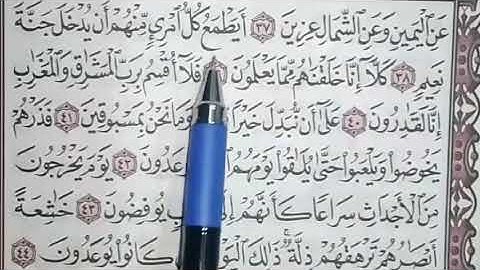 عَنِ ٱلْيَمِينِ وَعَنِ ٱلشِّمَالِ عِزِينَ ٣٧ أَيَطْمَعُ كُلُّ ٱمْرِئٍ مِّنْهُمْ أَن يُدْخَلَ جَنَّةَ
نَعِيمٍ ٣٨ كَلَّآ إِنَّا خَلَقْنَٰهُم مِّمَّا يَعْلَمُونَ فَلَآ أُقْسِمُ بِرَبِّ ٱلْمَشَٰرِقِ وَٱلْمَغَٰرِبِ
إِنَّا لَقَٰدِرُونَ ٤٠ عَلَىٰٓ أَن نُّبَدِّلَ خَيْرًا وَمَا نَحْنُ بِمَسْبُوقِينَ ٤١ فَذَرْهُمْ
يَخُوضُوا۟ وَيَلْعَبُوا۟ حَتَّىٰ يُلَٰقُوا۟ يَوْمَهُمُ يُوعَدُونَ ٤٢ يَوْمَ يَخْرُجُونَ
مِنَ ٱلْأَجْدَاثِ سِرَاعًا كَأَنَّهُمْ إِلَىٰ يُوفِضُونَ ٤٣ خَٰشِعَةً
أَبْصَٰرُهُمْ تَرْهَقُهُمْ ذِلَّةٌ ذَٰلِكَ ٱلْيَوْمُ كَانُوا۟ يُوعَدُونَ ٤٤